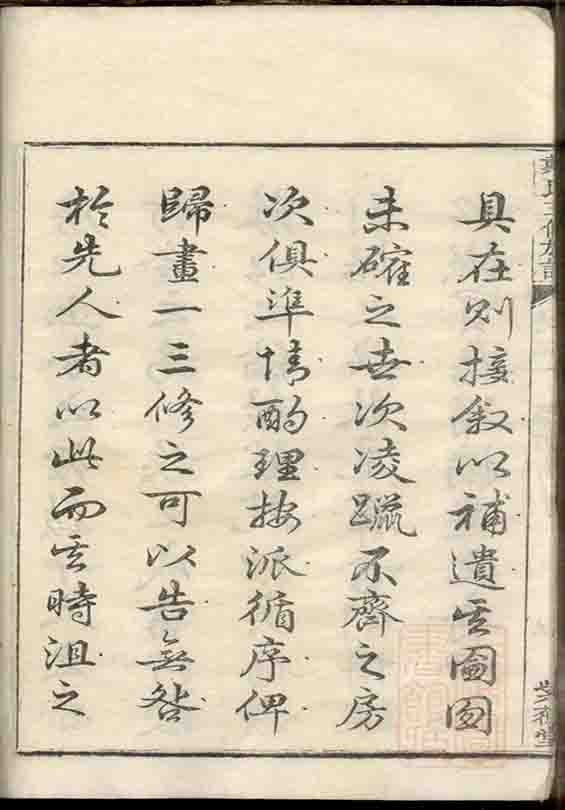 具在則接敘以補遺其圖囫
未確之世次凌躐不齊之房
次俱準情酌理按派循序俾
歸畫一三修之可以告無咎
於先人者以此而其時沮之